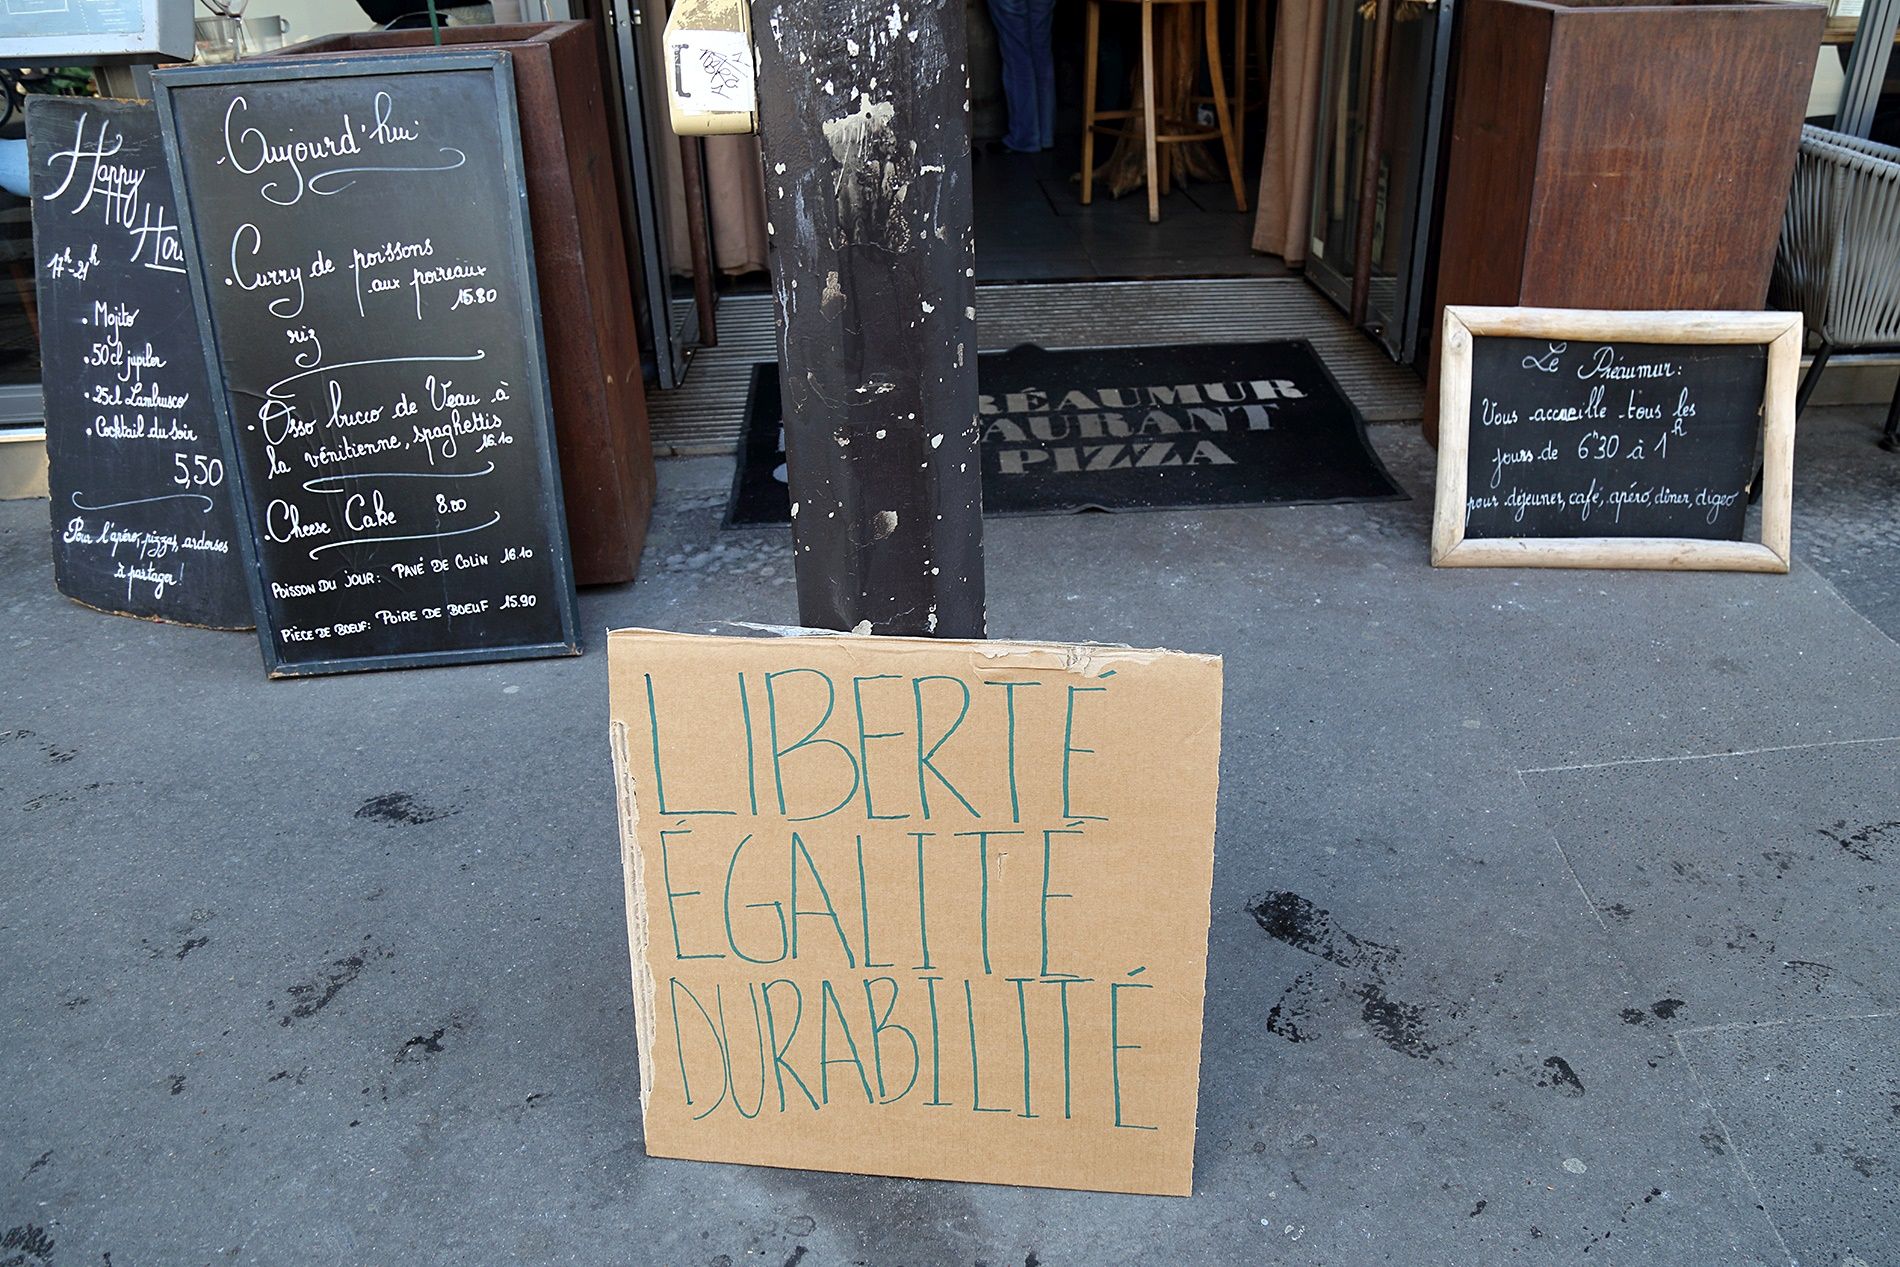 Happy
Hou
17h-21h
. Mojito
. 50cl jupiler
. 25cl Lambrusco
. Cocktail du soir
5,50
Pour l'apéro, pizzas, ardoises
à partager !
Aujourd'hui
. Curry de poissons
aux poireaux
15.80
riz
. Osso bucco de Veau à
la vénitienne, spaghettis
16.10
. Cheese Cake 8.00
POISSON DU JOUR: PAVÉ DE COLIN 16.10
PIÈCE DE BOEUF: POIRE DE BOEUF 15.90
RÉAUMUR
AURANT
PIZZA
Le Réaumur:
Vous accueille tous les
jours de 6h30 à 1h
pour déjeuner, café, apéro, dîner, digeo
LIBERTÉ
ÉGALITÉ
DURABILITÉ